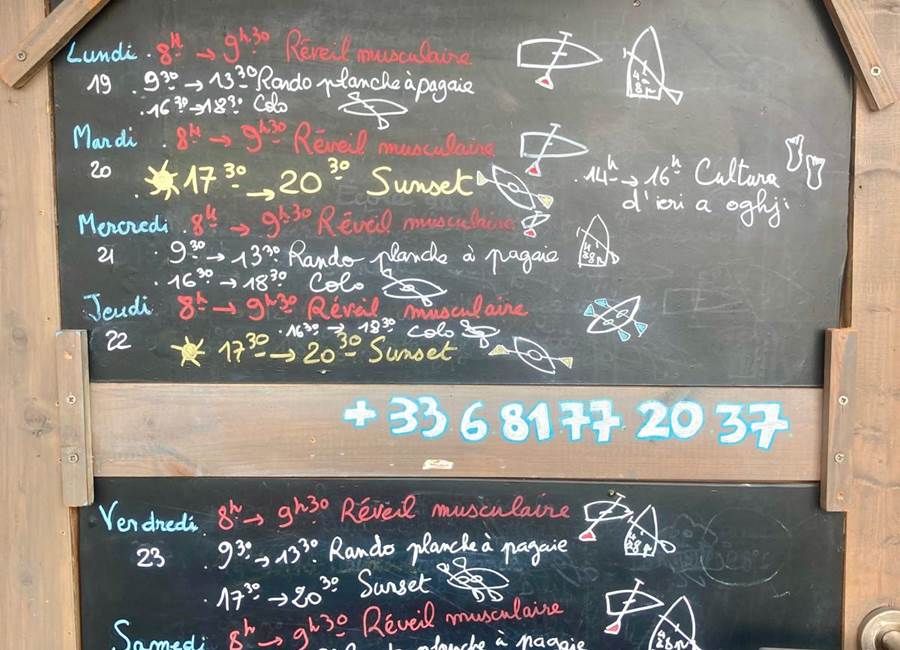 Lundi . 8h → 9h30 Réveil musculaire
19 . 9 30 → 13 30 Rando planche à pagaie
. 16 30 → 18 30 Colo
Mardi . 8h → 9h30 Réveil musculaire
20 17 30 → 20 30 Sunset
. 14h → 16h Cultura
d'ieri a oghji
Mercredi . 8h → 9h30 Réveil musculaire
21 . 9 30 → 13 30 Rando planche à pagaie
. 16 30 → 18 30 Colo
Jeudi 8h → 9h30 Réveil musculaire
22 . 16 30 → 18 30 Colo
17 30 → 20 30 Sunset
+33 6 81 77 20 37
Vendredi 8h → 9h30 Réveil musculaire
23 . 9 30 → 13 30 Rando planche à pagaie
. 17 30 → 20 30 Sunset
Samedi . 8h → 9h30 Réveil musculaire
planche à pagaie